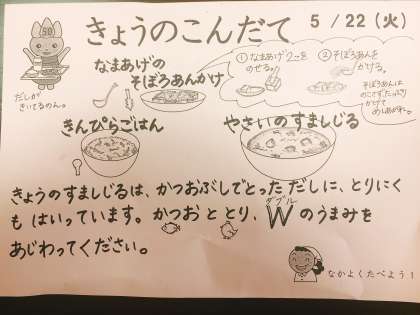 きょうのこんだて 5/22(火)
50
だしが
きいてるのん。
なまあげの
そぼろあんかけ
①なまあげ2こを
のせる。
②そぼろあんを
かける。
そぼろあんは
かけて
めしあがれ。
きんぴらごはん
やさいのすましじる
きょうのすましじるは、かつおぶしでとっただしに、とりにく
もはいっています。かつおととり、Wのうまみを
ダブル
あじわってください。
なかよくたべよう!